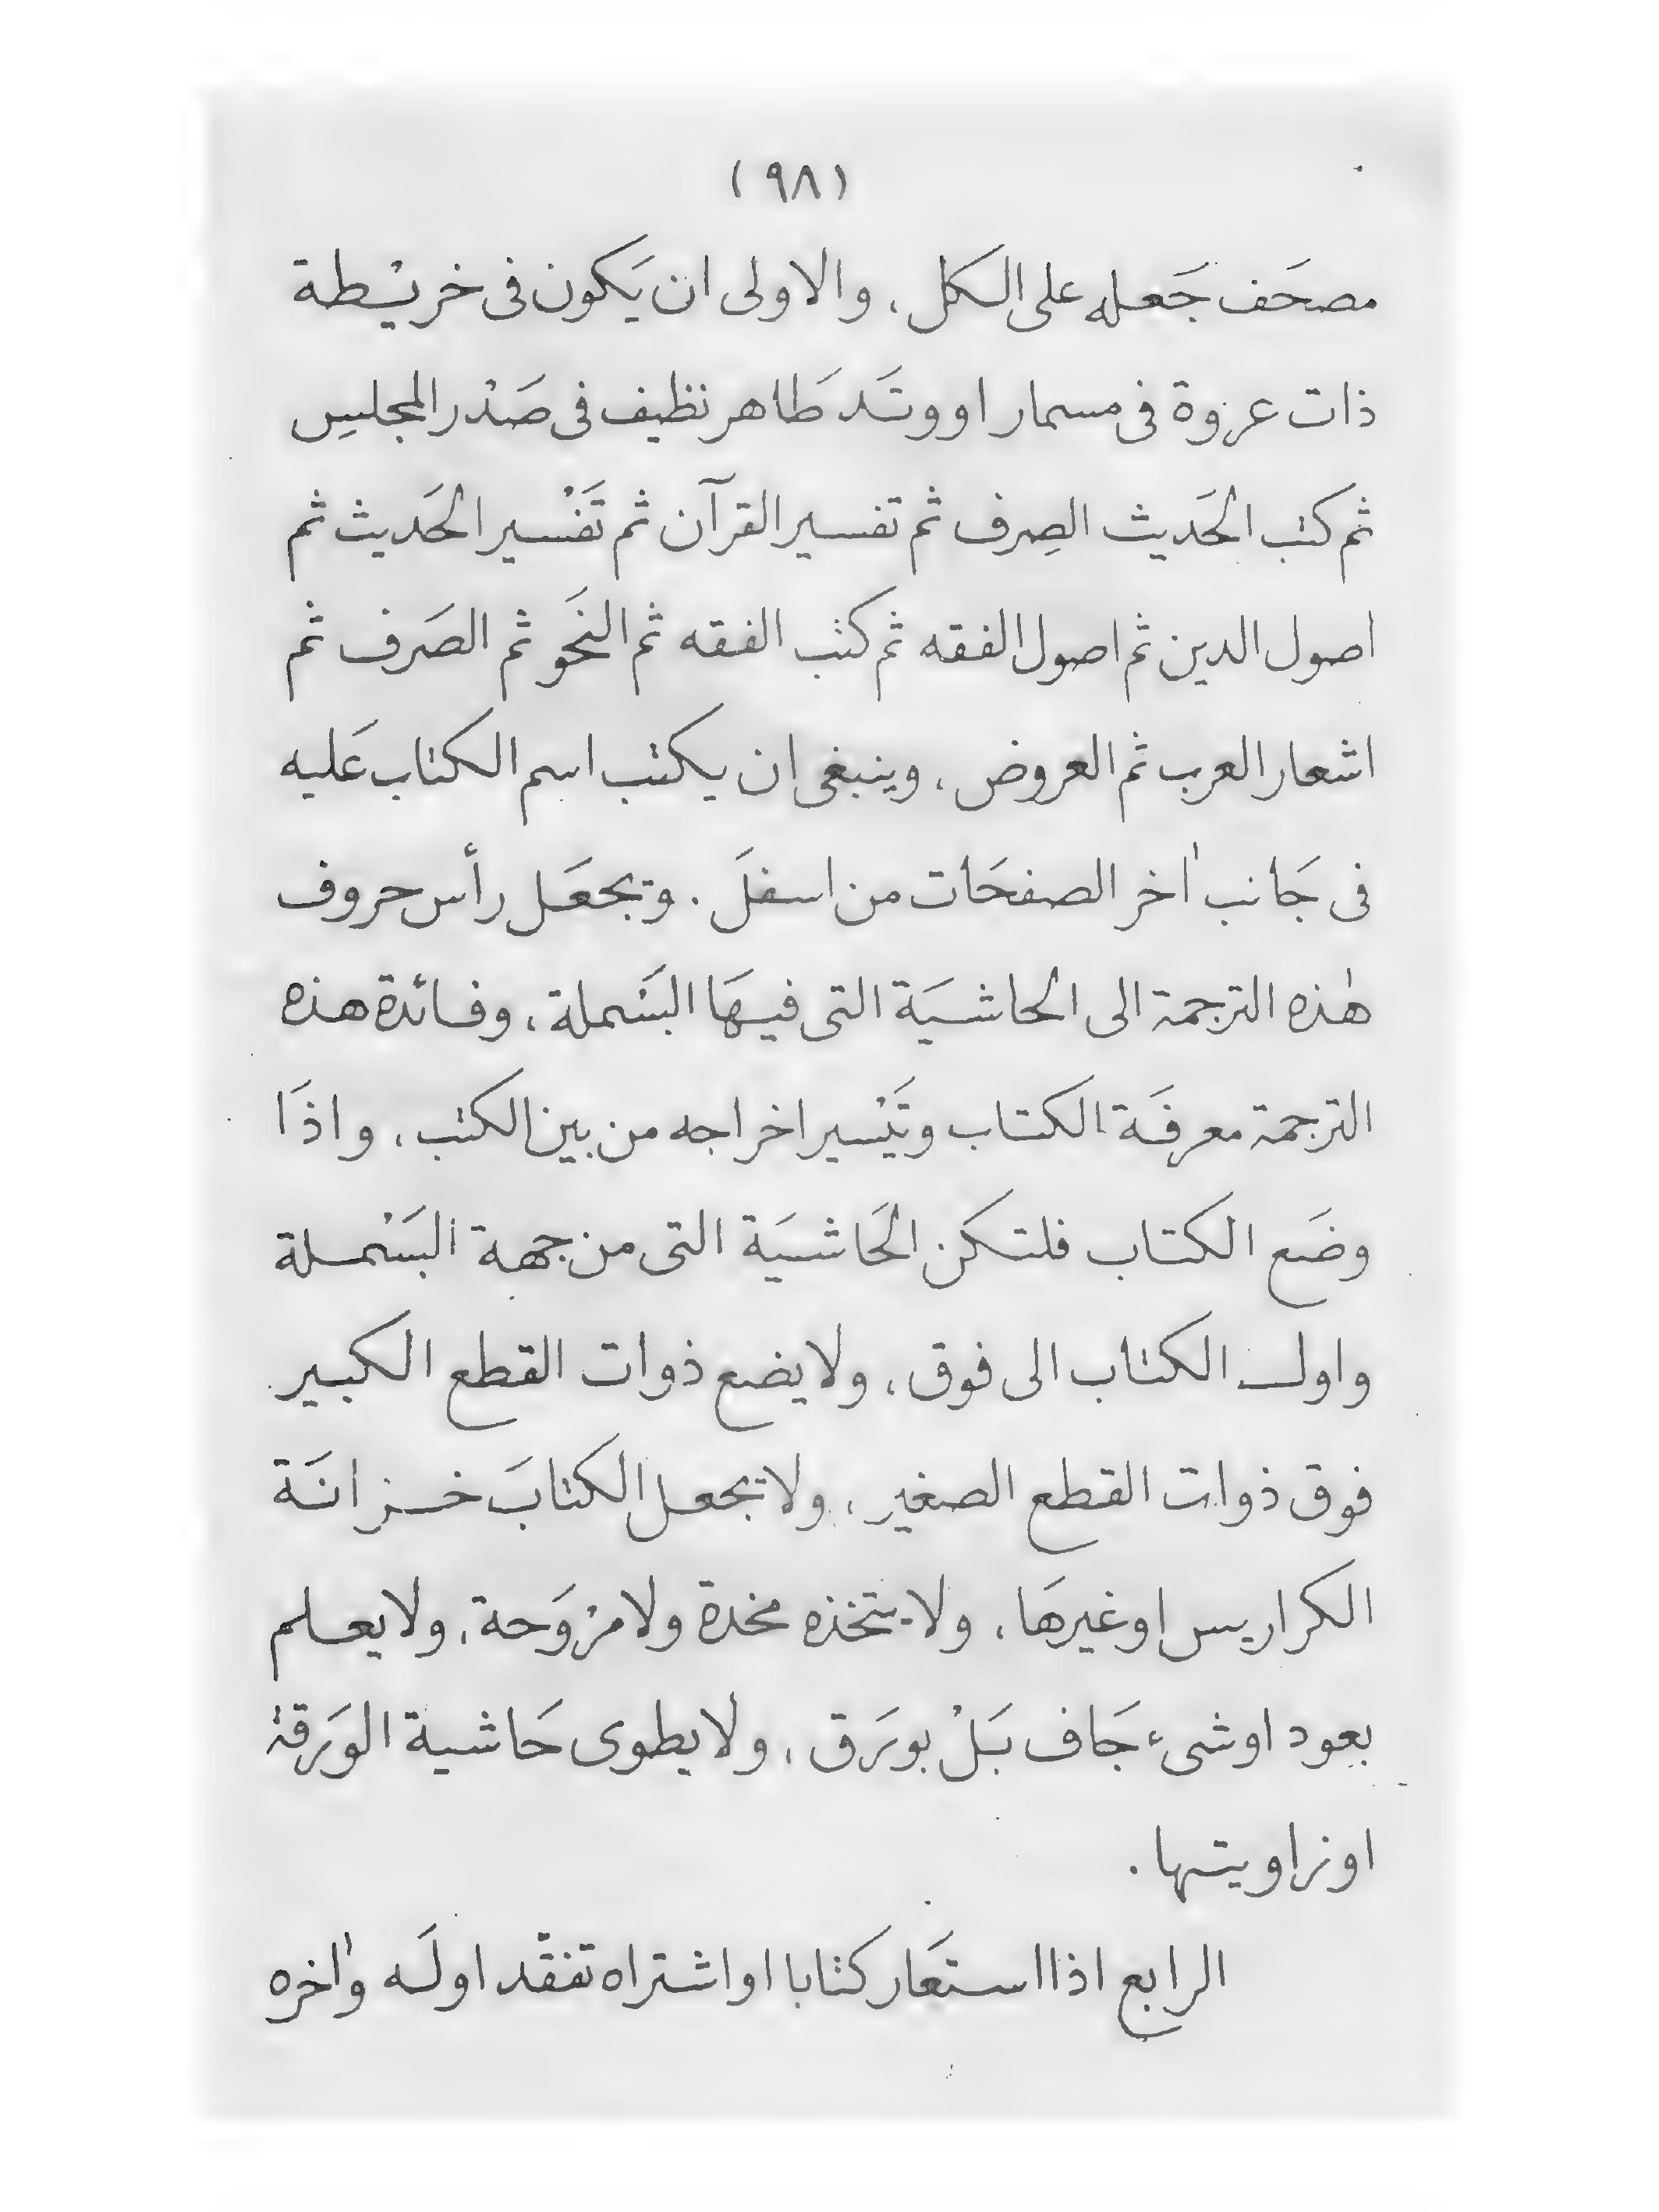 (٩٨)
مصحَف جَعله على الكل ، والاولى ان يَكون فى خريْطة
ذات عروة فى مسمار او وتَد طَاهر نظيف فى صَدْر المجلسِ
ثم كتب الحَديث الصِرف ثم تفسير القرآن ثم تَفْسير الحَديث ثم
اصول الدين ثم اصول الفقه ثم كتب الفقه ثم النَحو ثم الصَرف ثم
اشعار العرب ثم العروض ، وينبغى ان يكتب اسم الكتاب عَليه
فى جَانب اٰخر الصفحَات من اسفلَ . ويجعَل رأس حروف
هٰذه الترجمة الى الحاشيَة التى فيهَا البسَملة ، وفائدة هذه
الترجمة معرفَة الكتاب وتَيْسير اخراجه من بين الكتب ، واذَا
وضَع الكتاب فلتكن الحَاشيَة التى من جهة البسَْملة
واول الكتاب الى فوق ، ولا يضع ذوات القطع الكبير
فوق ذوات القطع الصغير ، ولا يجعل الكتابَ خزانَة
الكراريس او غيرهَا ، ولا يتخذه مخدة ولا مرْوَحة ، ولا يعلم
بعود او شىء جَاف بَلْ بورَق ، ولا يطوى حَاشية الورَقة
او زاويتها .
الرابع اذا استعَار كتابا او اشتراه تفقّد اولَه واٰخره